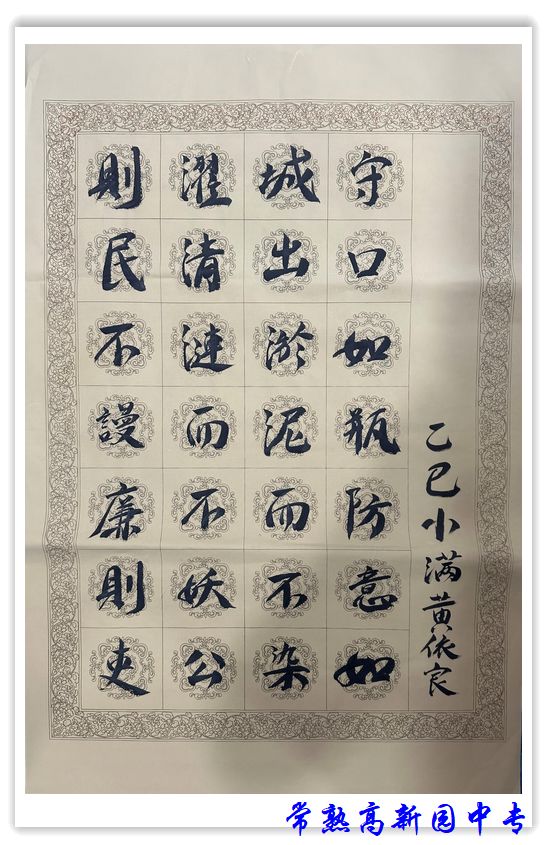 守口如瓶防意如
城出淤泥而不染
濯清漣而不妖公
則民不謾廉則吏
乙巳小满黄依
常熟高新园中专